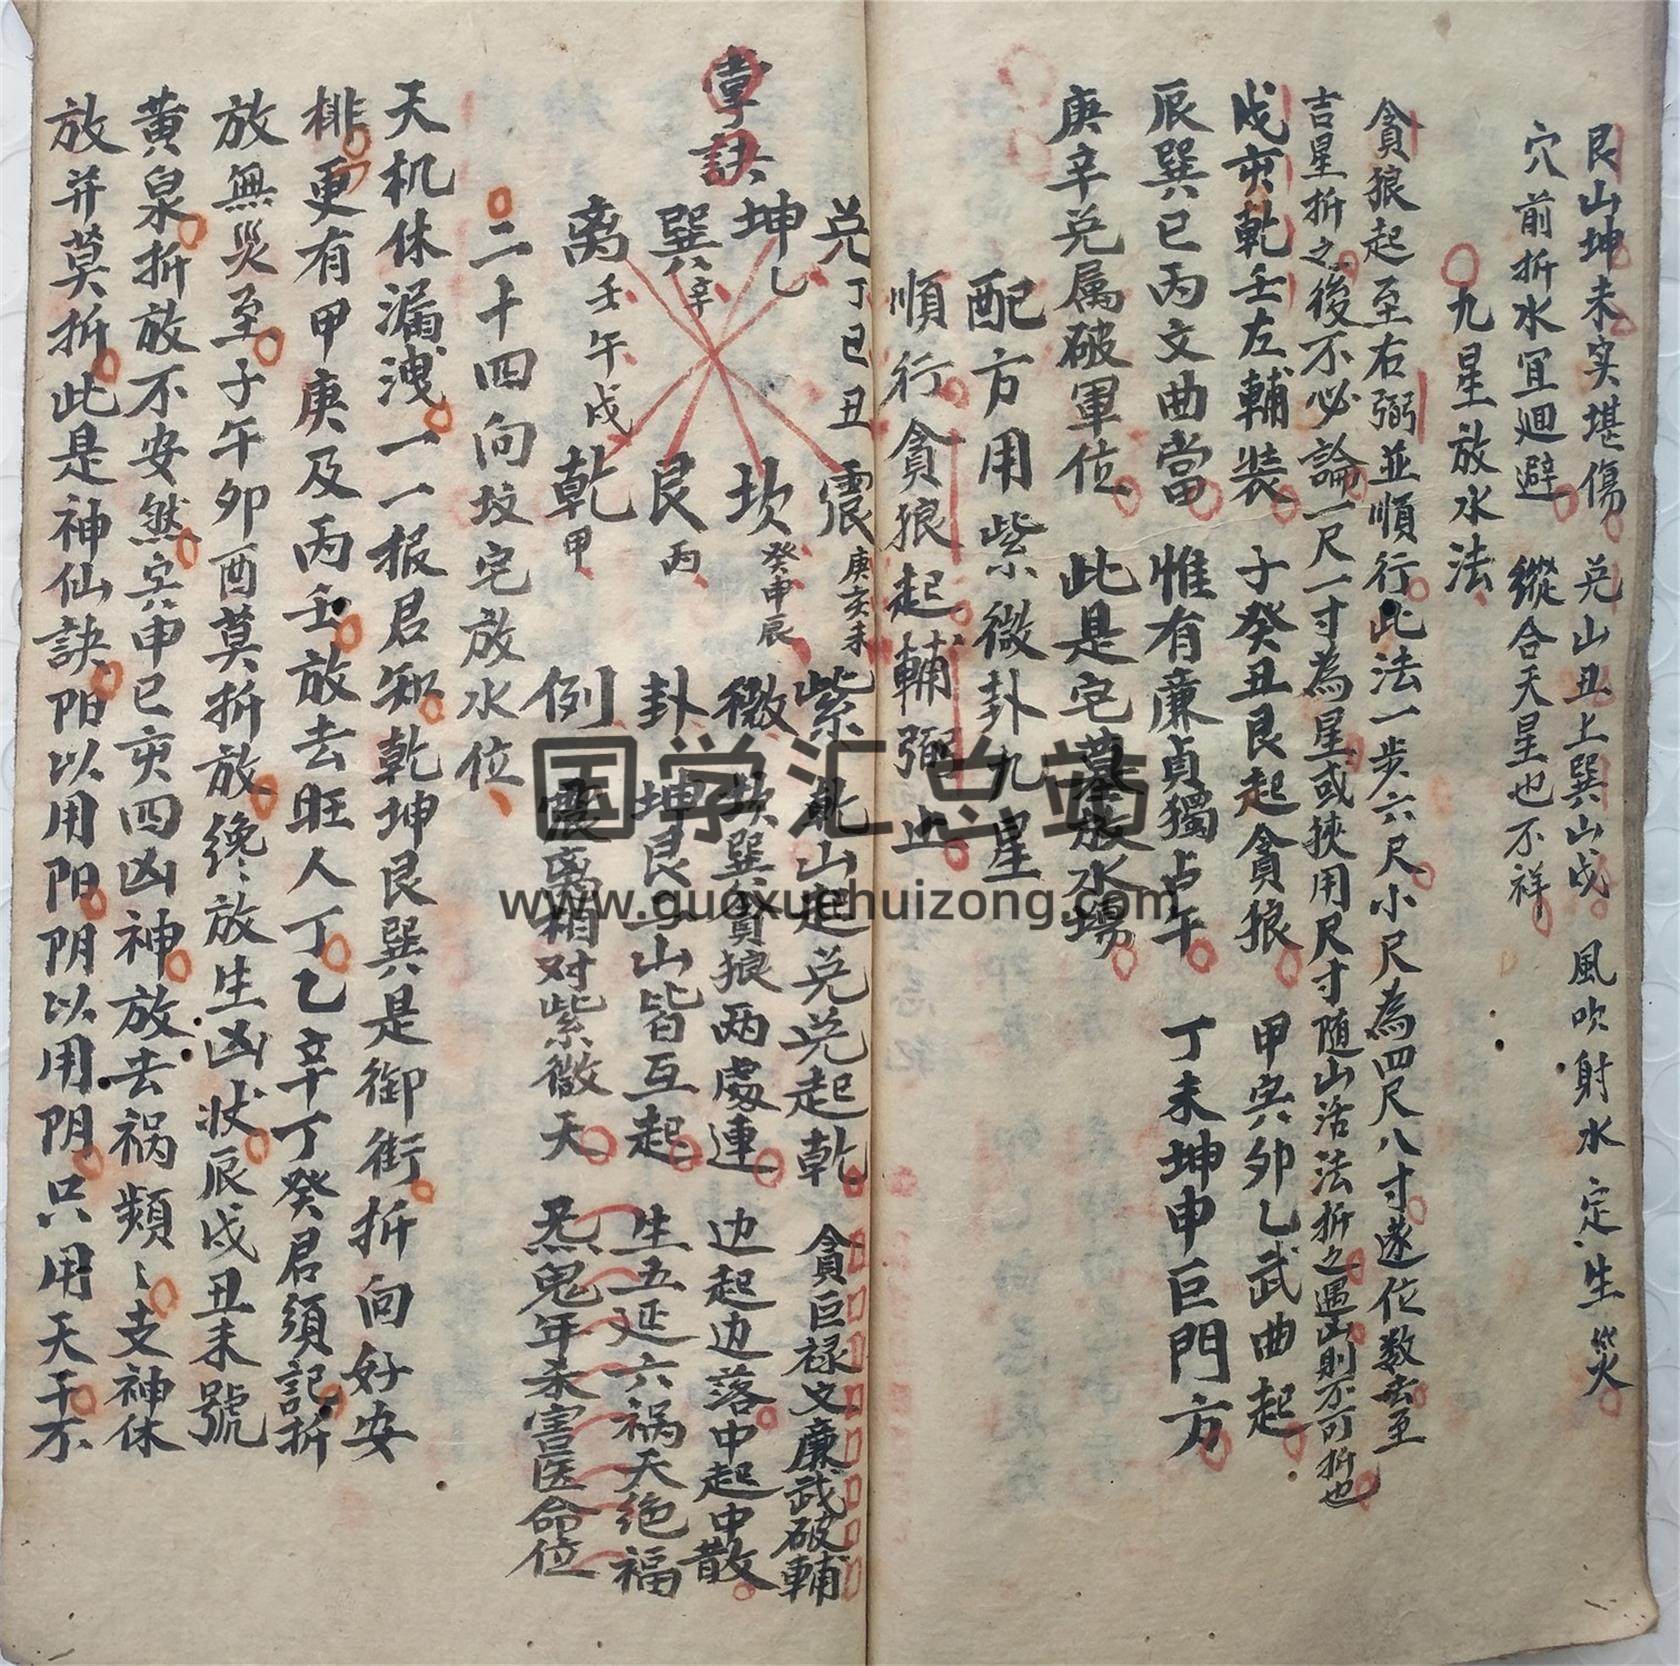 艮山坤未实堪傷 兑山丑上巽山戌 風吹射水定生災
穴前折水宜迴避 縱合天星也不祥
九星放水法
貪狼起至右弼並順行此法一步六尺小尺為四尺八寸遂位数去至
吉星折之後不必論一尺一寸為星或挾用尺寸隨山活法折之遇凶則不可折也
戌亥乾壬左輔裝 子癸丑艮起貪狼 甲寅卯乙武曲起
辰巽巳丙文曲當 惟有廉貞獨占午 丁未坤申巨門方
庚辛兑属破軍位 此是宅墓放水場
配方用紫微卦九星
順行貪狼起輔弼止
掌訣
兑丁巳丑 震庚亥未
坤乙 坎癸申辰
巽辛 艮丙
离壬午戌 乾甲
紫微卦例
乾山起兑兑起乾
坎巽貪狼两處連
坤艮二山皆互起
震离相对紫微天
貪巨禄文廉武破輔
边起边落中起中散
生五延六祸天绝福
炁鬼年杀害医命位
二十四向坟宅放水位
天机休漏洩一一报君知乾坤艮巽是御街折向好安
排更有甲庚及丙壬放去旺人丁乙辛丁癸君須記折
放無災至子午卯酉莫折放纔放生凶状辰戌丑未號
黄泉折放不安然寅申巳亥四凶神放去祸頻〻支神休
放并莫折此是神仙訣阳以用阳阴以用阴只用天干不
国学汇总站
www.guoxuehuizong.com